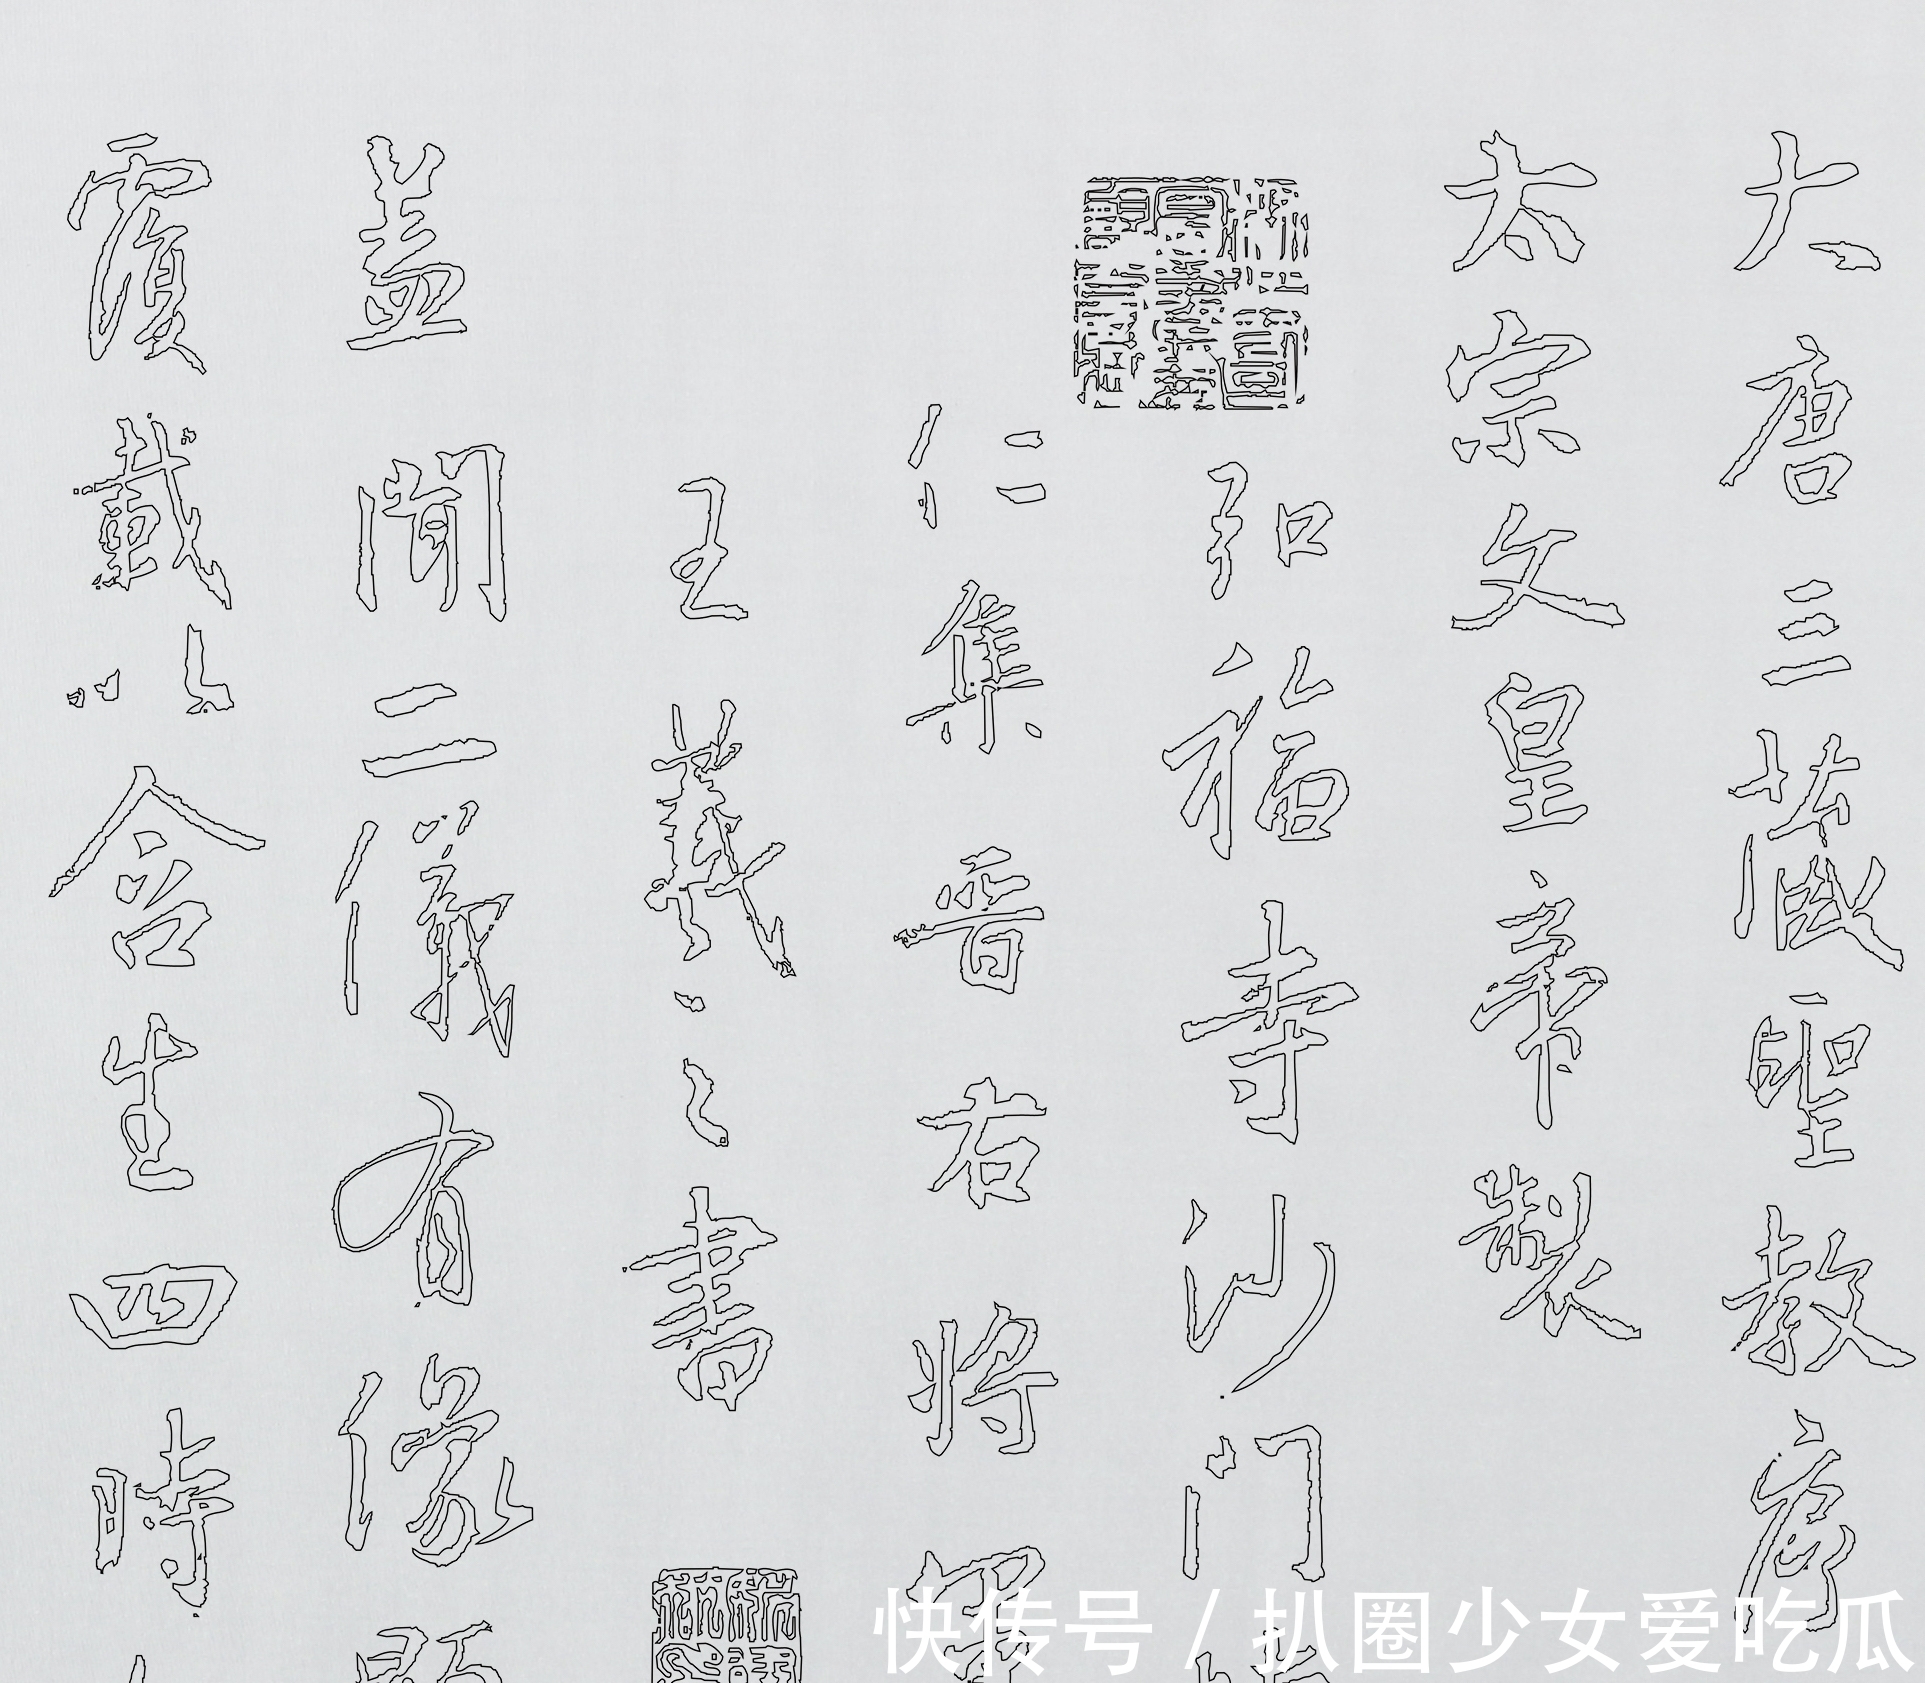 大唐三藏聖教序
太宗文皇帝製
弘福寺沙门
仁集晋右将軍
王羲之書
盖聞二儀有像顯
覆載以含生四時
快传号 / 扒圈少女爱吃瓜